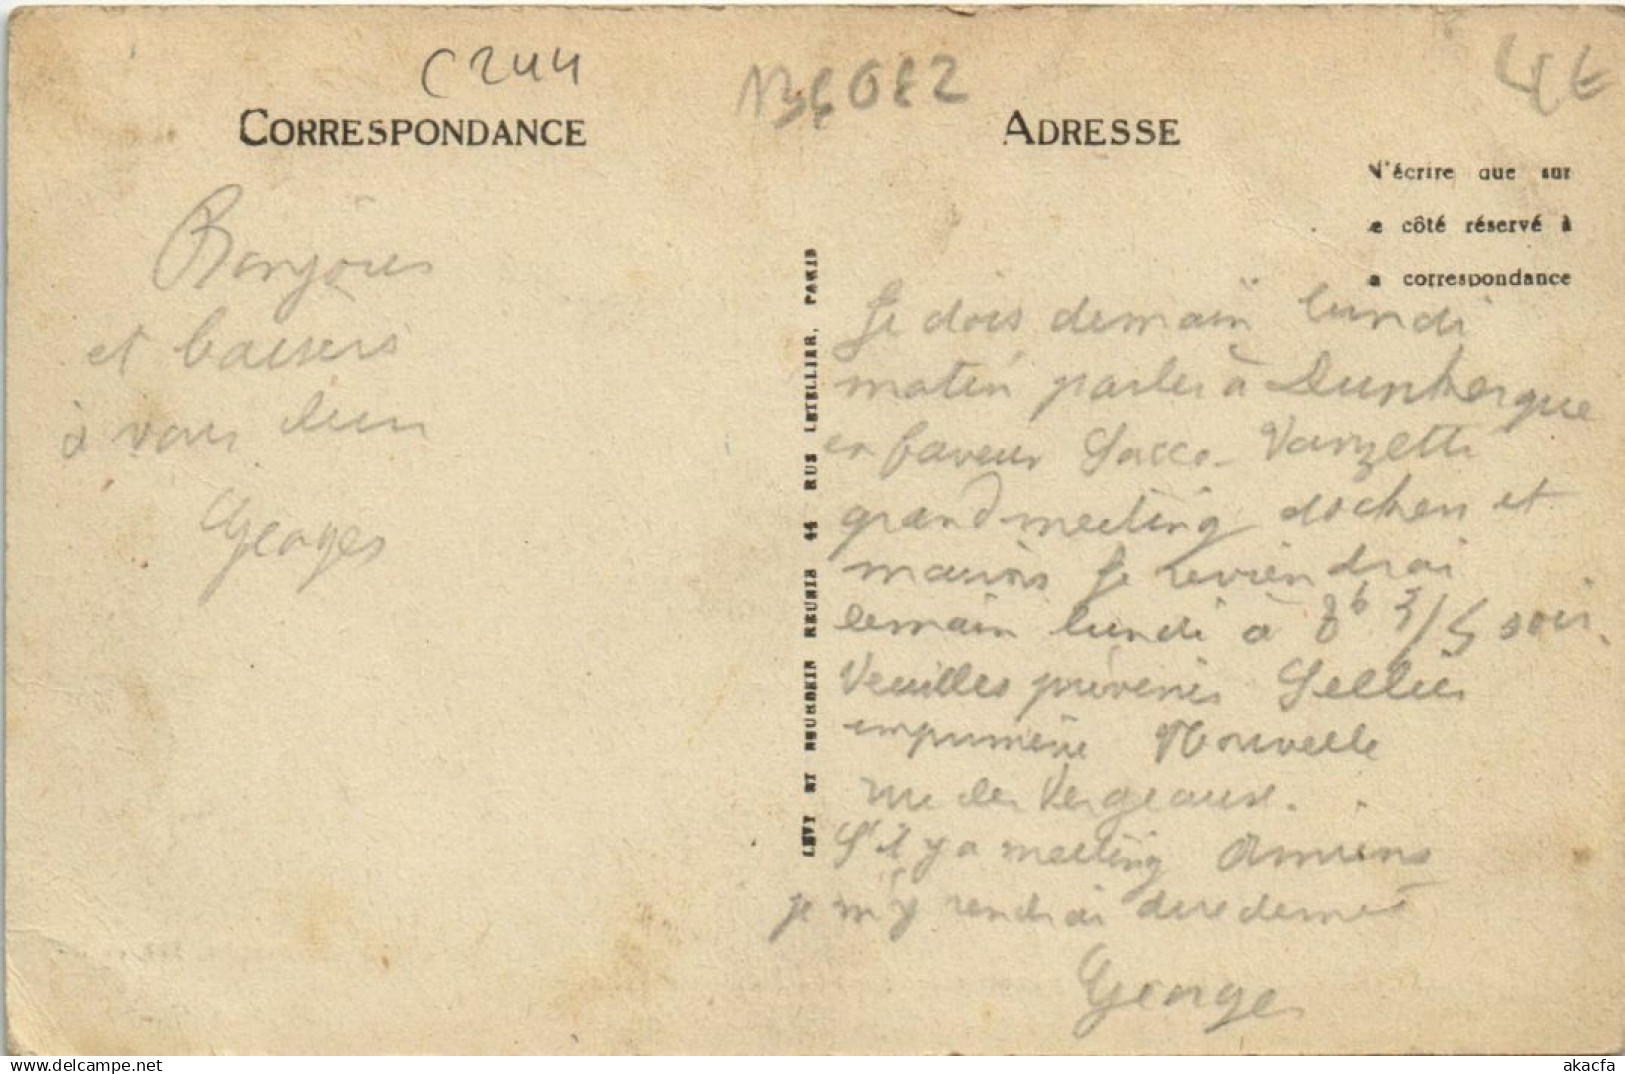 C244
CORRESPONDANCE
ADRESSE
N'écrire que sur
le côté réservé à
la correspondance
Bonjours
et baisers
à vous deux
Georges
LEVY ET NEURDEIN REUNIS 44 RUE LETELLIER, PARIS
Je dois demain lundi
matin parler à Dunkerque
en faveur Sacco-Vanzetti
grand meeting dockers et
marins Je reviendrai
demain lundi à soir.
Veuilles prévenir Sellier
imprimerie Nouvelle
rue des Vergeaux.
S'il y a meeting Amiens
je m'y rendrai
Georges
akacfa